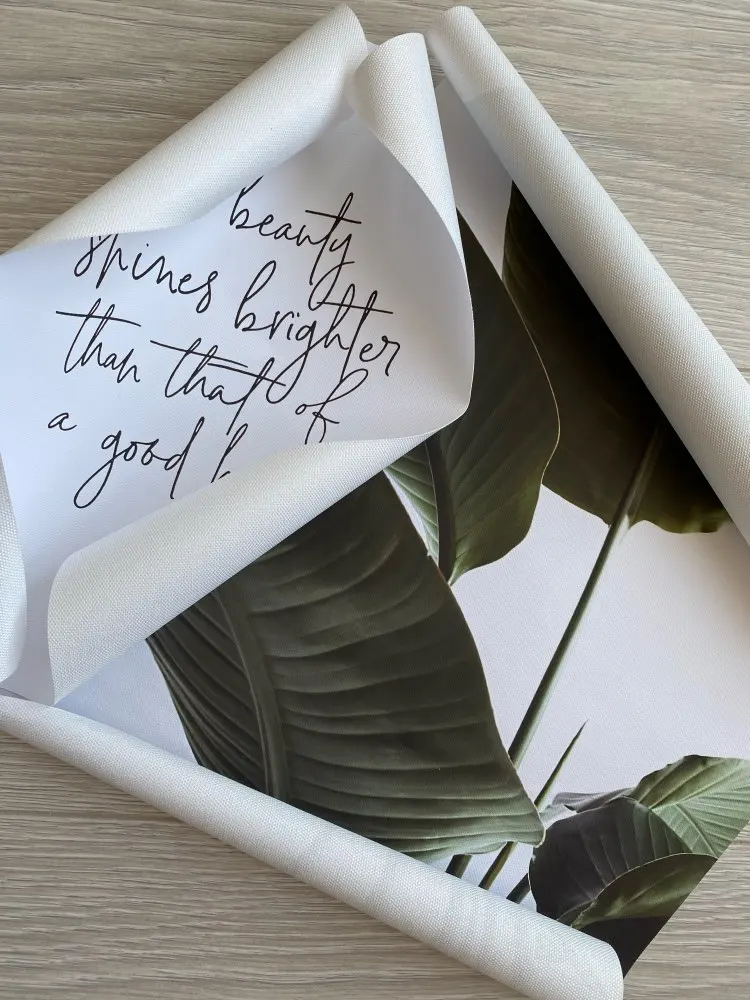 beauty
shines brighter
than that of
a good